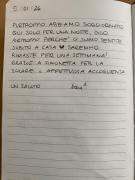 5/01/26
PURTROPPO ABBIAMO SOGGIORNATO
QUI SOLO PER UNA NOTTE, DICO
PURTROPPO PERCHÉ CI SIAMO SENTITE
SUBITO A CASA ♥ SAREMMO
RIMASTE PER UNA SETTIMANA!
GRAZIE A SIMONETTA PER LA
SOLARE E AFFETTUOSA ACCOGLIENZA
UN SALUTO